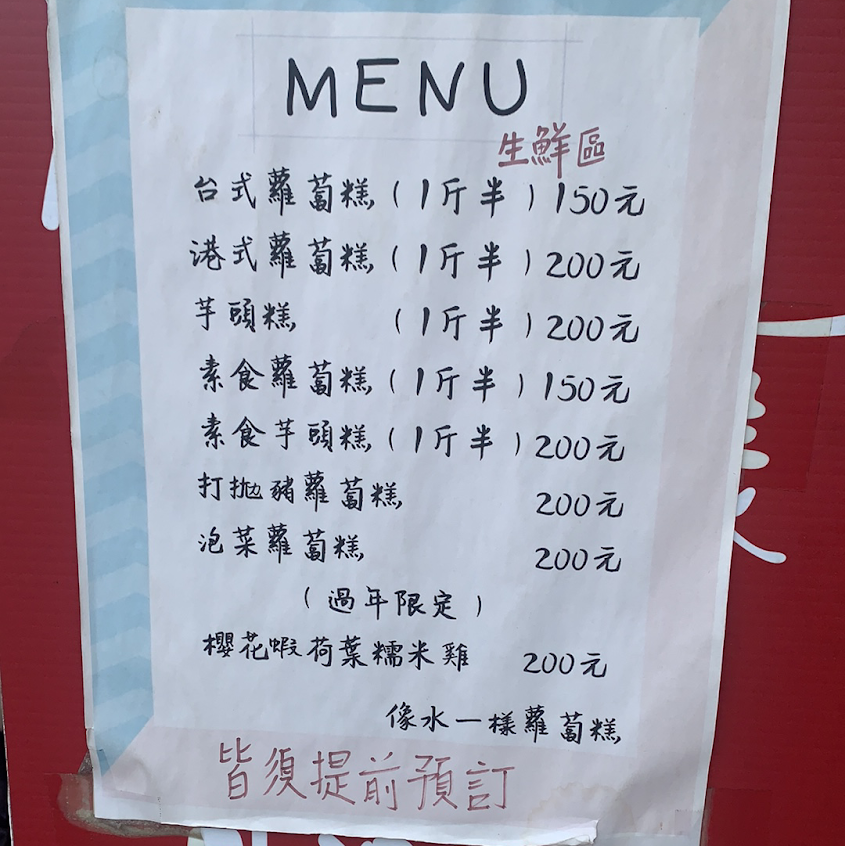 MENU
生鮮區
台式蘿蔔糕(1斤半)150元
港式蘿蔔糕(1斤半)200元
芋頭糕 (1斤半)200元
素食蘿蔔糕(1斤半)150元
素食芋頭糕(1斤半)200元
打拋豬蘿蔔糕 200元
泡菜蘿蔔糕 200元
(過年限定)
櫻花蝦荷葉糯米雞 200元
像水一樣蘿蔔糕
皆須提前預訂